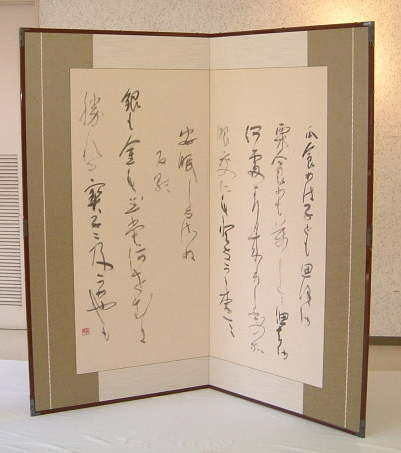 瓜食めば子ども思ほゆ
栗食めばまして思はゆ
何處より来りしものぞ
眼交にもとなかかりて
安眠しなさぬ
反歌
銀も金も玉も何せむに
勝れる寶子に及かめやも